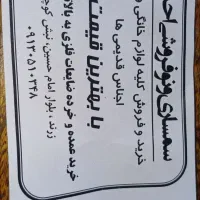 سمساری و نوفروشی
خرید و فروش کلیه لوازم خانگی و
اجناس قدیمی ها
با بهترین قیمت
خرید عمده و خرده ضایعات فلزی به بالاترین
زرند ، بلوار امام حسین، نبش کوچه
۰۹۱۳۰۵۱۰۳۴۸